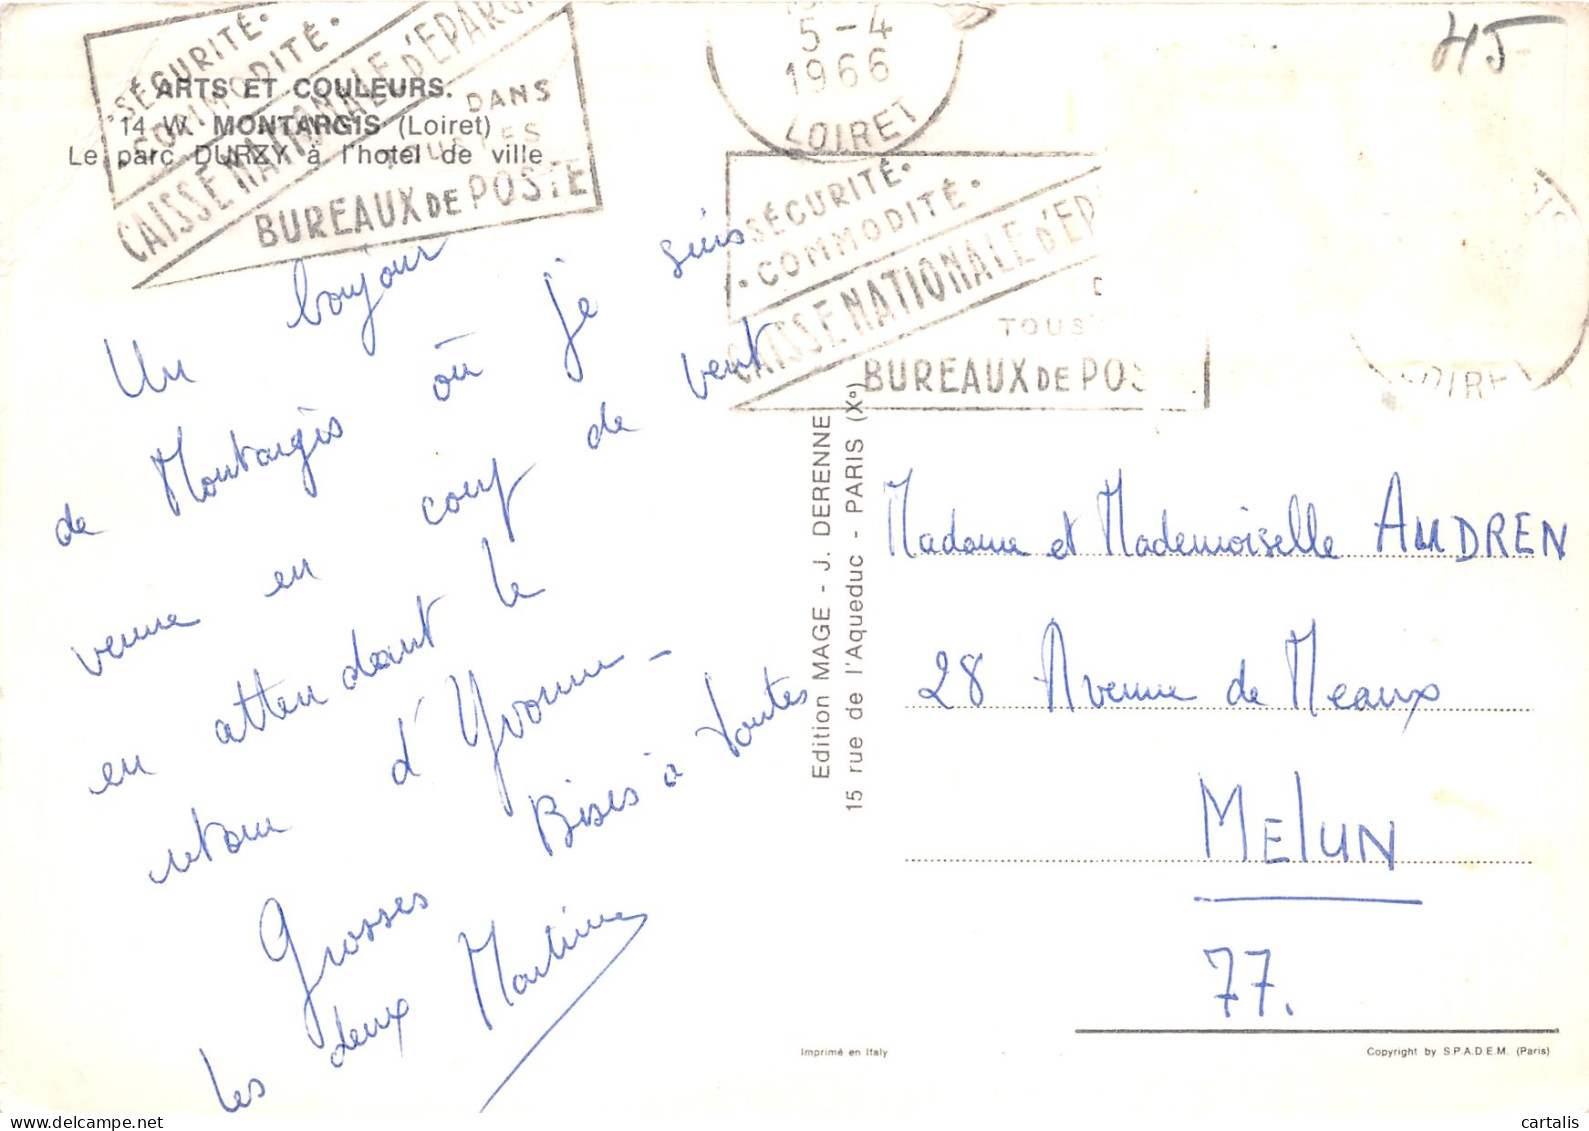 SÉCURITÉ.
COMMODITÉ.
CAISSE NATIONALE D'ÉPARG
DANS
TOUS LES
BUREAUX DE POSTE
ARTS ET COULEURS.
14 W. MONTARGIS (Loiret)
Le parc DURZY à l'hotel de ville
5-4
1966
LOIRET
45
. SÉCURITÉ.
. COMMODITÉ.
CAISSE NATIONALE D'ÉP
TOUS
BUREAUX DE POS
OIRE
Un bonjour
de Montargis où je suis
venue en coup de vent
en attendant le
retour d'Yvonne_
Grosses Bises à toutes
les deux Martine
Edition MAGE - J. DERENNE
15 rue de l'Aqueduc - PARIS (Xe)
Madame et Mademoiselle AUDREN
28 Avenue de Meaux
MElUN
77.
Imprimé en Italy
Copyright by S.P.A.D.E.M. (Paris)
cartalis
www.delcampe.net